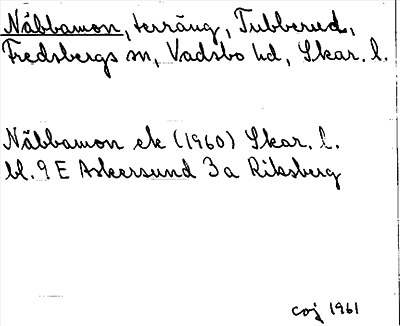 Näbbamon, terräng, Tubberud,
Fredsbergs sn, Vadsbo hd, Skar. l.
Näbbamon ek (1960) Skar. l.
bl. 9 E Askersund 3a Riksberg
coj 1961